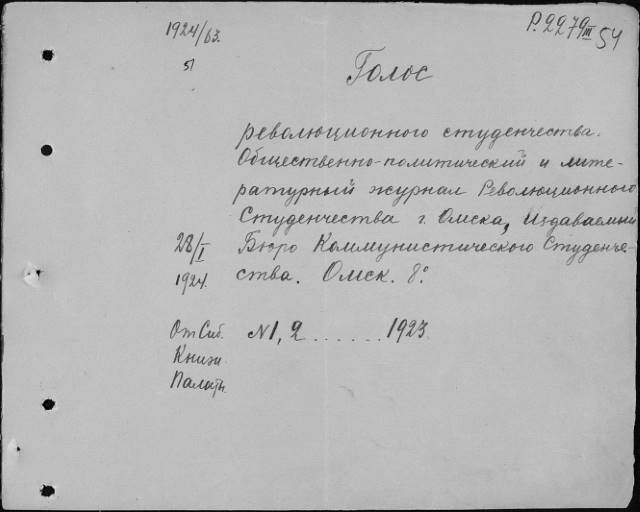 1924/63.
51
P.2279 III 54
Голос
революционного студенчества.
Общественно-политический и лите-
ратурный журнал Революционного
Студенчества г. Омска, Издаваемый
28/I Бюро Коммунистического Студенче-
1924. ства. Омск. 8°.
От Сиб. N1, 2 ...... 1923.
Книжн.
Палаты.